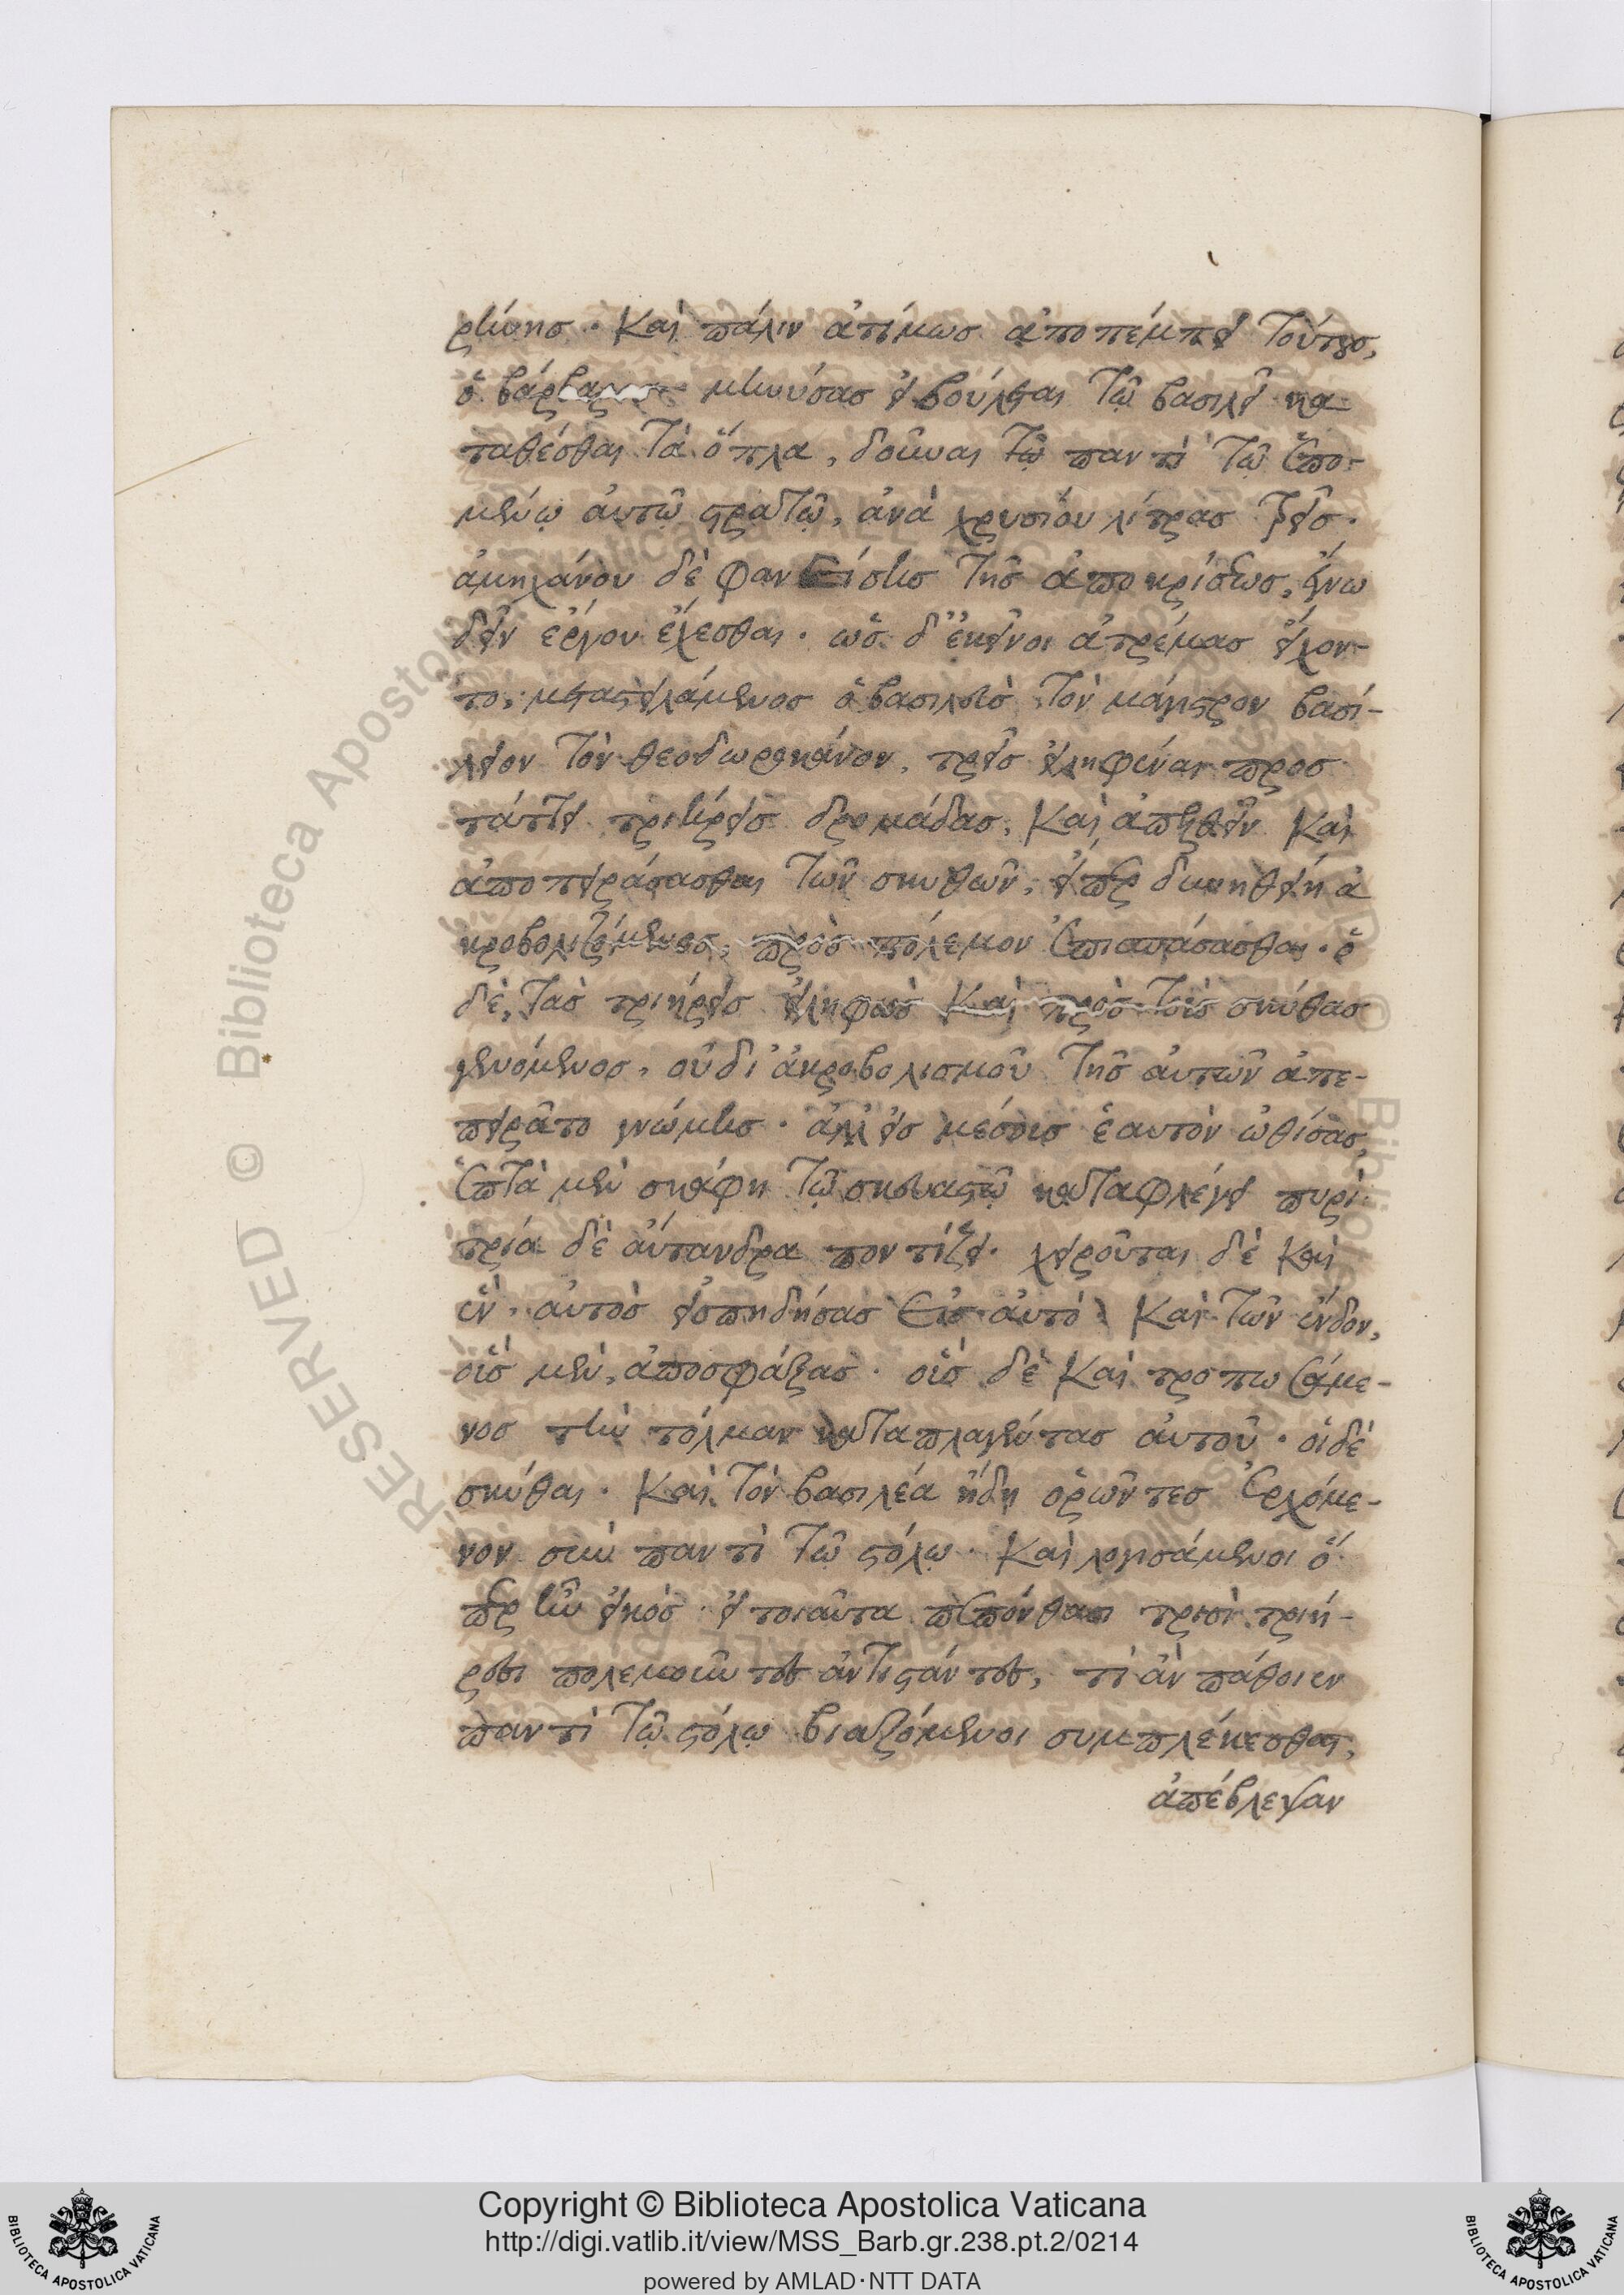 ρήνης. Καὶ πάλιν ἀτίμως ἀποπέμπει τούτους,
ὁ βάρβαρος μηνύσας εἰ βούλεται τῷ βασιλεῖ κα-
ταθέσθαι τὰ ὅπλα, δοῦναι τῷ παντὶ τῷ ἑπο-
μένῳ αὐτῷ στρατῷ, ἀνὰ χρυσίου λίτρας τρεῖς.
ἀμηχάνου δὲ φανείσης τῆς ἀποκρίσεως, ἔγνω
δεῖν ἔργου ἔχεσθαι. ὡς δ' ἐκεῖνοι ἀτρέμας εἴχον-
το, μεταστειλάμενος ὁ βασιλεὺς τὸν μάγιστρον βασί-
λειον τὸν θεοδωροκάνον, τρεῖς εἰληφέναι προσ
τάττει τριήρεις δρομάδας, Καὶ ἀπελθεῖν Καὶ
ἀποπειράσασθαι τῶν σκυθῶν, εἴπερ δυνηθείη ἀ
κροβολιζόμενος, πρὸς πόλεμον ἐπισπάσασθαι. ὁ
δὲ, τὰς τριήρεις εἰληφὼς Καὶ πρὸς τοὺς σκύθας
γενόμενος, οὐ δι' ἀκροβολισμοῦ τῆς αὐτῶν ἀπε-
πειρᾶτο γνώμης. ἀλλ' εἰς μέσους ἑαυτὸν ὠθίσας,
ἑπτὰ μὲν σκάφη τῷ σκευαστῷ καταφλέγει πυρὶ
τρία δὲ αὔτανδρα ποντίζει. χειροῦται δὲ καὶ
ἓν, αὐτὸς εἰσπηδήσας εἰς αὐτὸ Καὶ τῶν ἔνδον,
οὓς μὲν, ἀποσφάξας. οὓς δὲ Καὶ τροπωσάμε-
νος τὴν τόλμαν καταπλαγέντας αὐτοῦ. οἱ δὲ
σκύθαι. Καὶ τὸν βασιλέα ἤδη ὁρῶντες ἐρχόμε-
νον σὺν παντὶ τῷ στόλῳ. Καὶ λογισάμενοι ὅ
περ ἦν εἰκὸς. εἰ τοιαῦτα πεπόνθασι τρισὶ τριή-
ρεσι πολεμοῦντες ἀντιστάντες, τί ἂν πάθοιεν
παντὶ τῷ στόλῳ βιαζόμενοι συμπλέκεσθαι,
ἀπέβλεψαν
Copyright © Biblioteca Apostolica Vaticana
http://digi.vatlib.it/view/MSS_Barb.gr.238.pt.2/0214
powered by AMLAD·NTT DATA